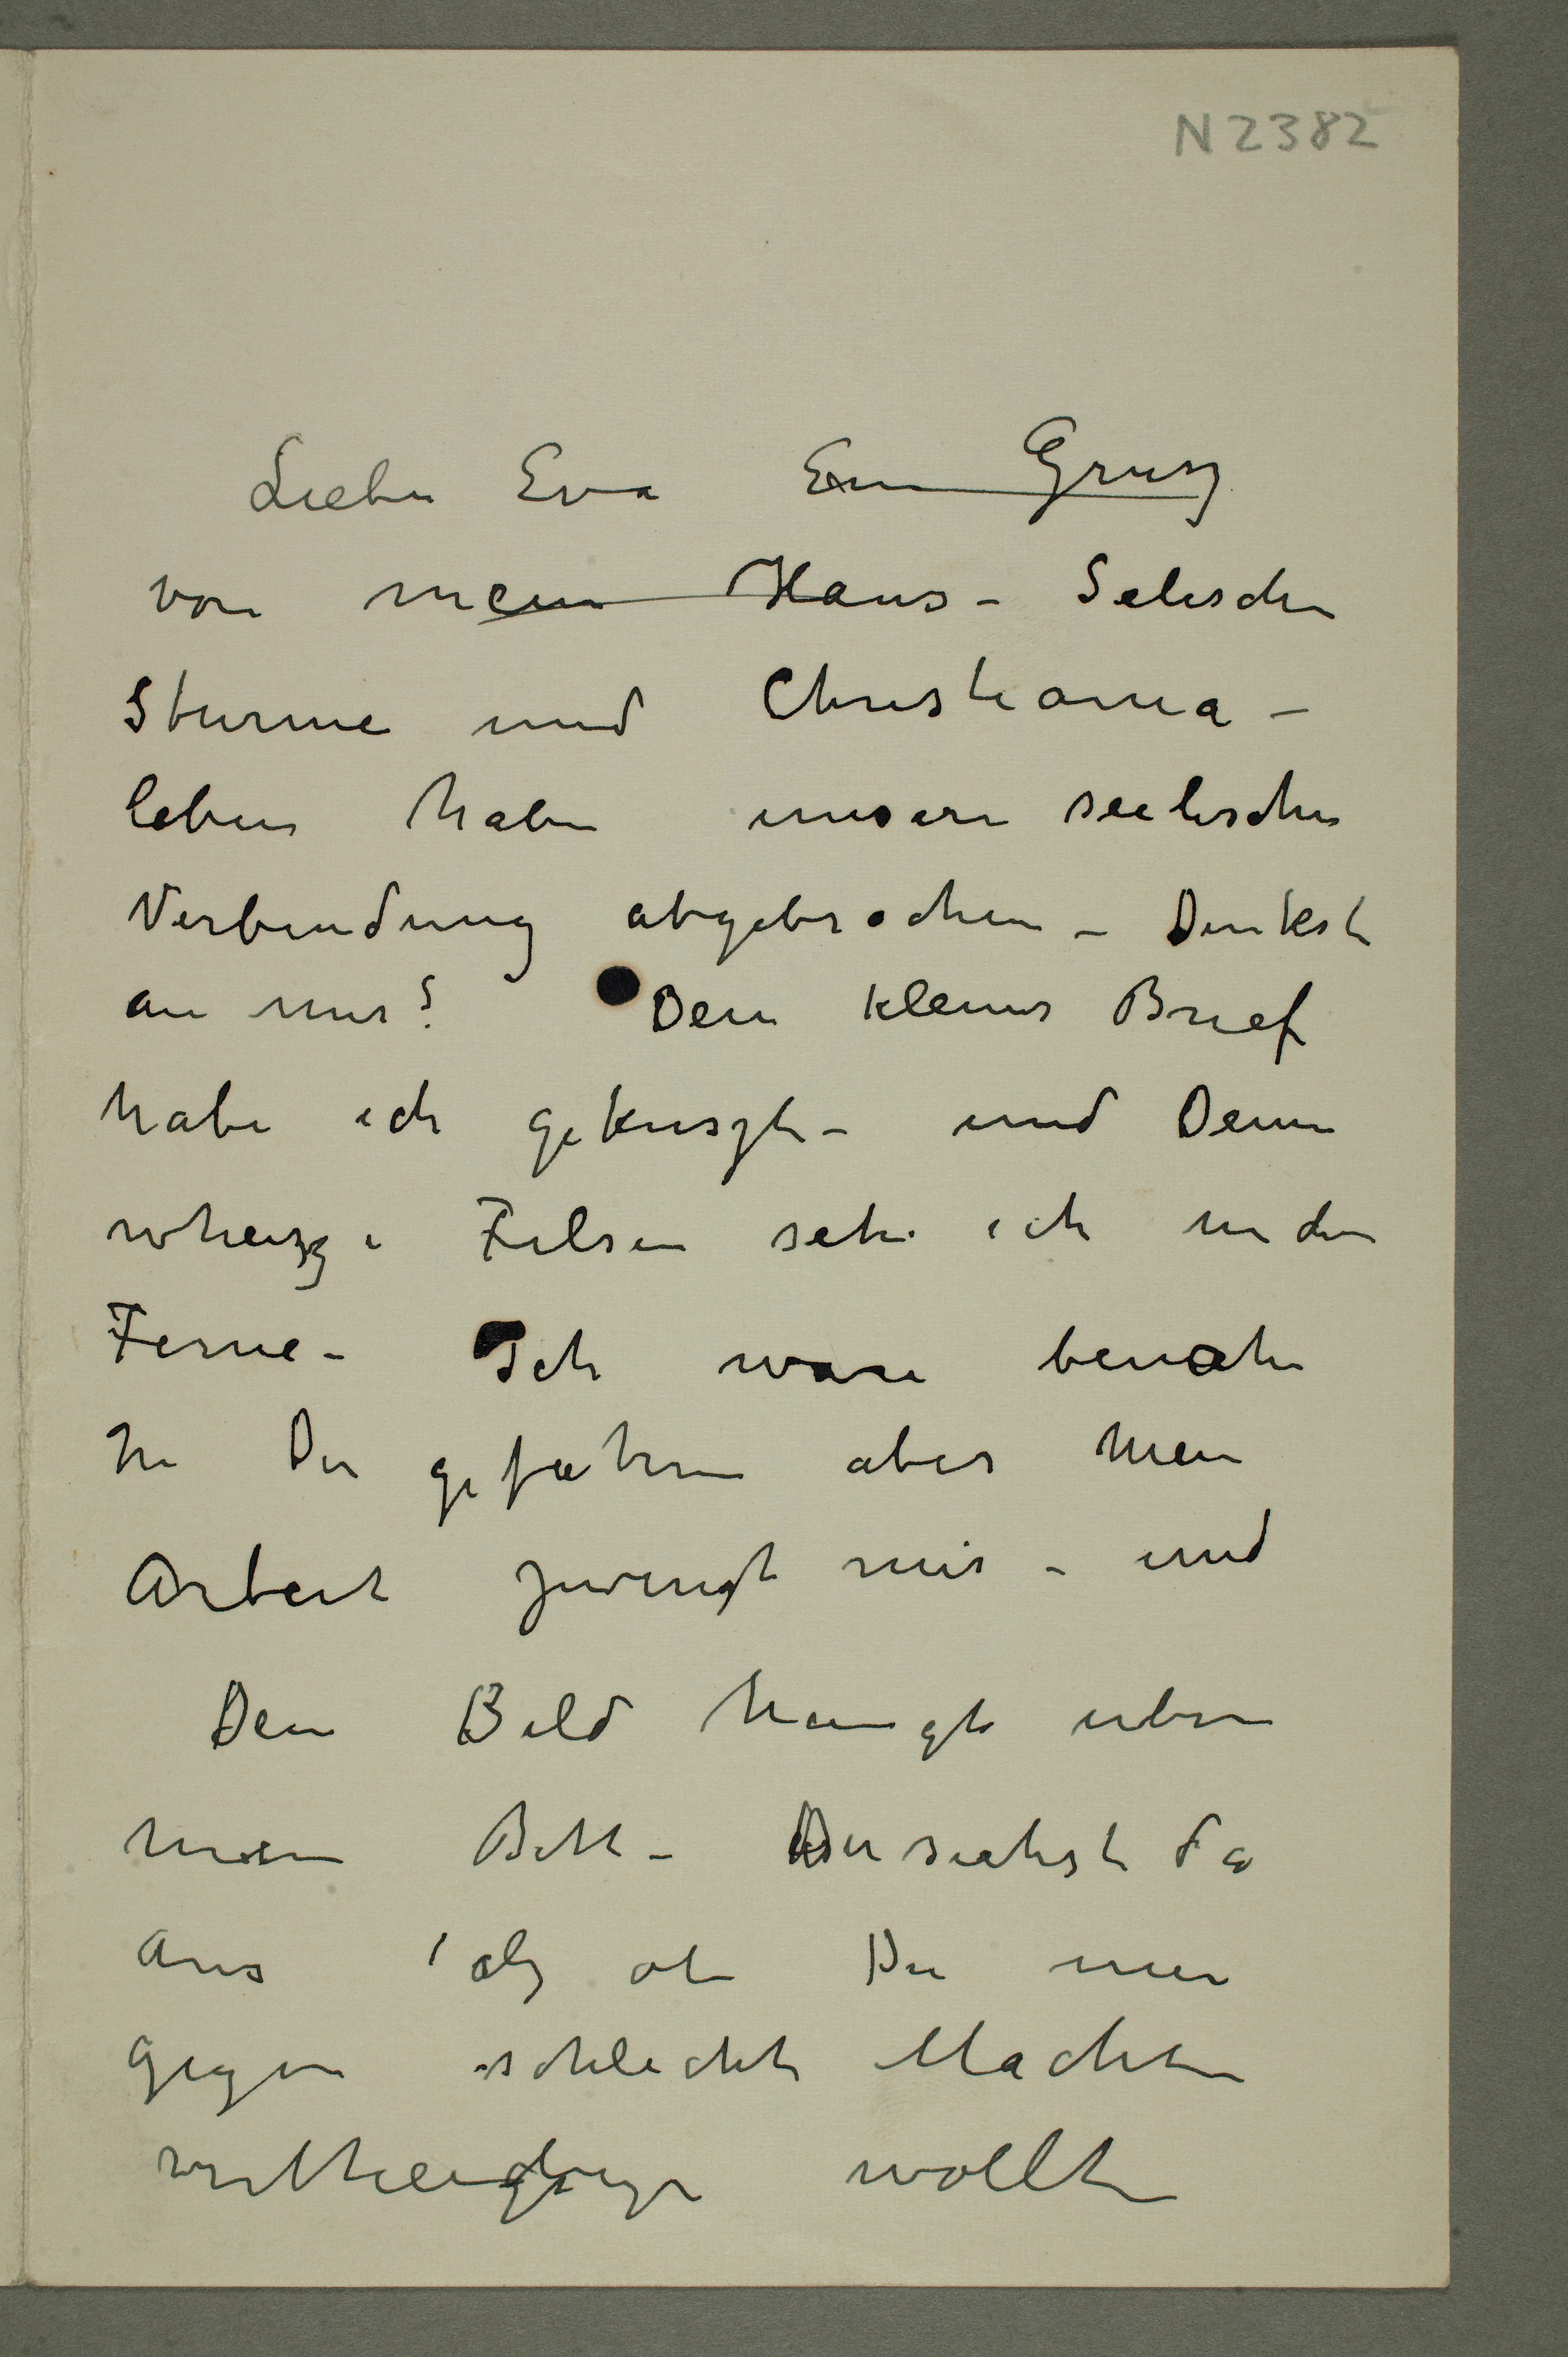 N 2382
Liebe Eva Ein Grusz
von mein Haus – Selische
Sturme und Christiania –
leben haben unsere seelische
Verbindung abgebrochen – Denkst
an mir? Dein kleiner Brief
habe ich gekuszt – und Deine
wheisze Felsen sehe ich in den
Ferne – Ich ware beinahe
zu Dir gefahren aber mein
Arbeit zwingt mir – und
Dein Bild hangt uber
mein Bett – Du siehst da
aus als ob Du mir
gegen schlechte Machte
wollte